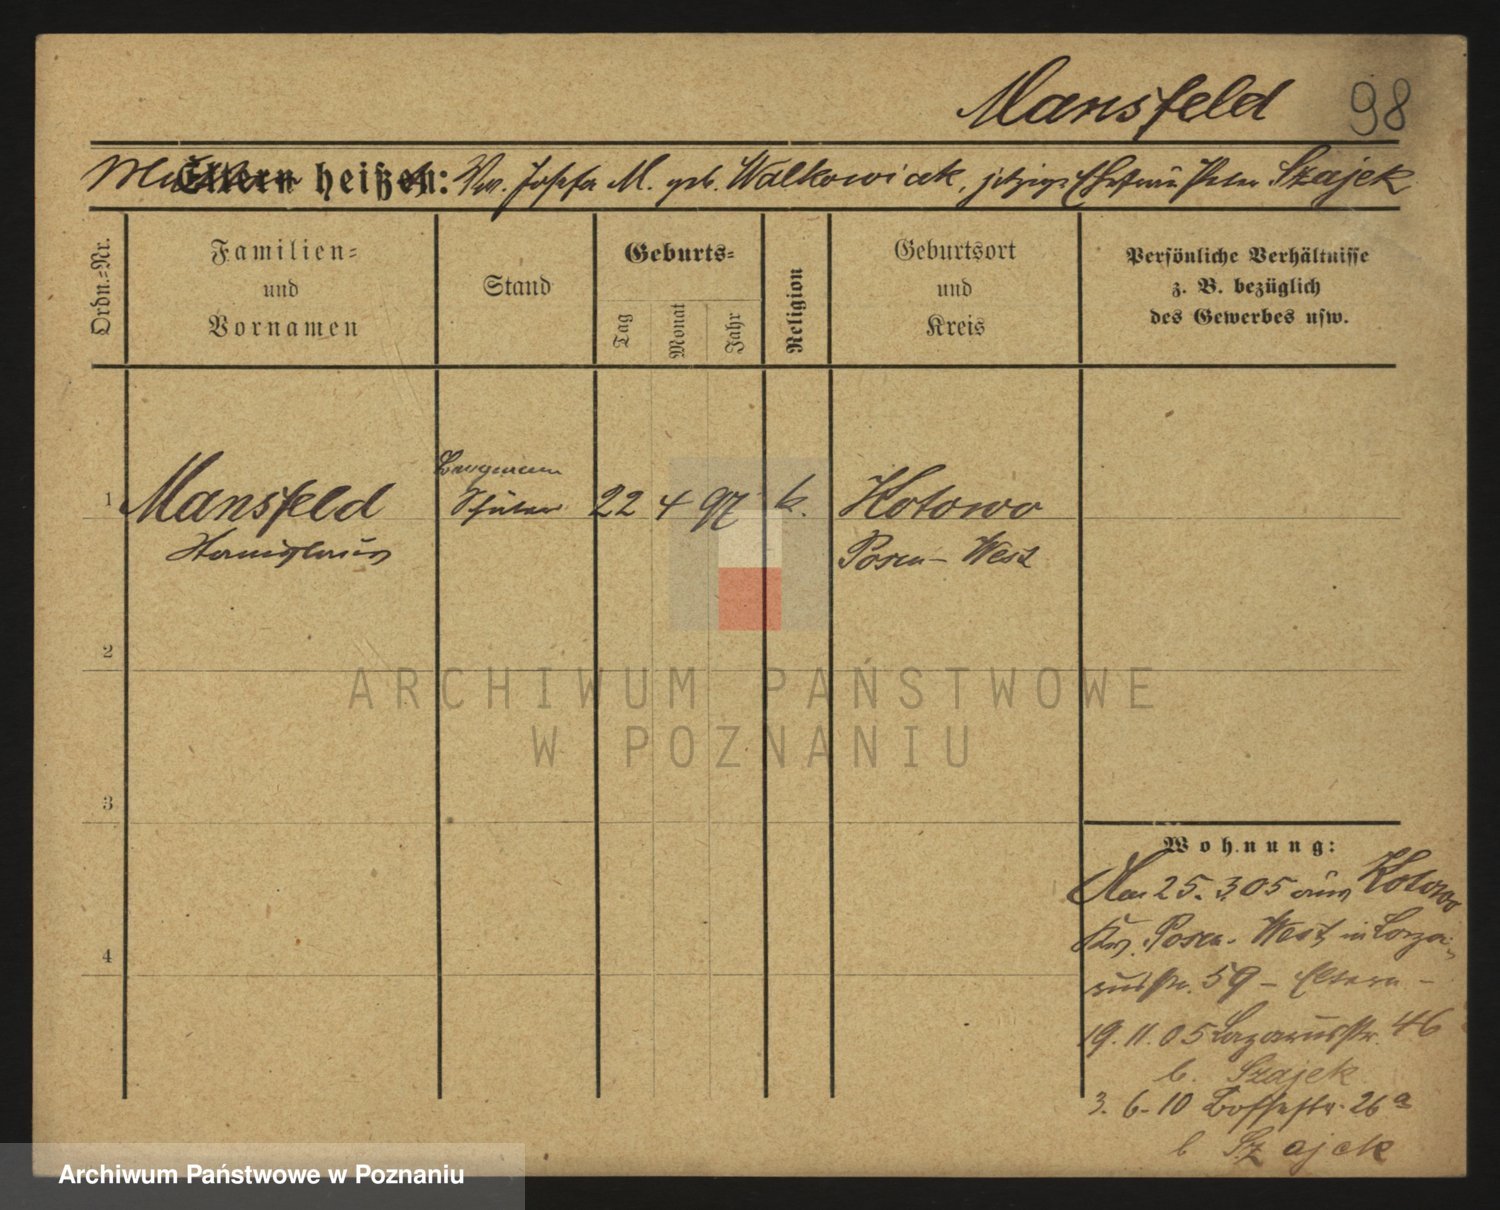 Mansfeld 98
Mutter heißt: Ww. Josefa M. geb. Walkowiak, jetzige Ehefrau Peter Szajek
Ordn.-Nr.
Familien-
und
Vornamen
Stand
Geburts-
Tag
Monat
Jahr
Religion
Geburtsort
und
Kreis
Persönliche Verhältnisse
z. B. bezüglich
des Gewerbes usw.
1 Mansfeld Schüler 22 4 97 k. Kotowo
Stanislaus Posen-West
2
3
4
Wohnung:
25.3.05 aus Kotowo
Krs. Posen-West in Laza-
russtr. 59 - Eltern -
19.11.05 Lazarusstr. 46
b. Szajek
3.6.10 26a
b Szajek
ARCHIWUM PAŃSTWOWE
W POZNANIU
Archiwum Państwowe w Poznaniu